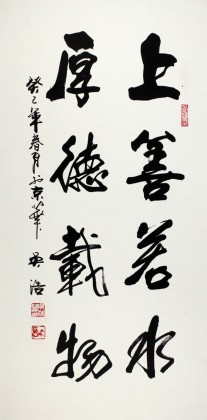 上善若水
厚德載物
癸巳年春月於京華 吴浩